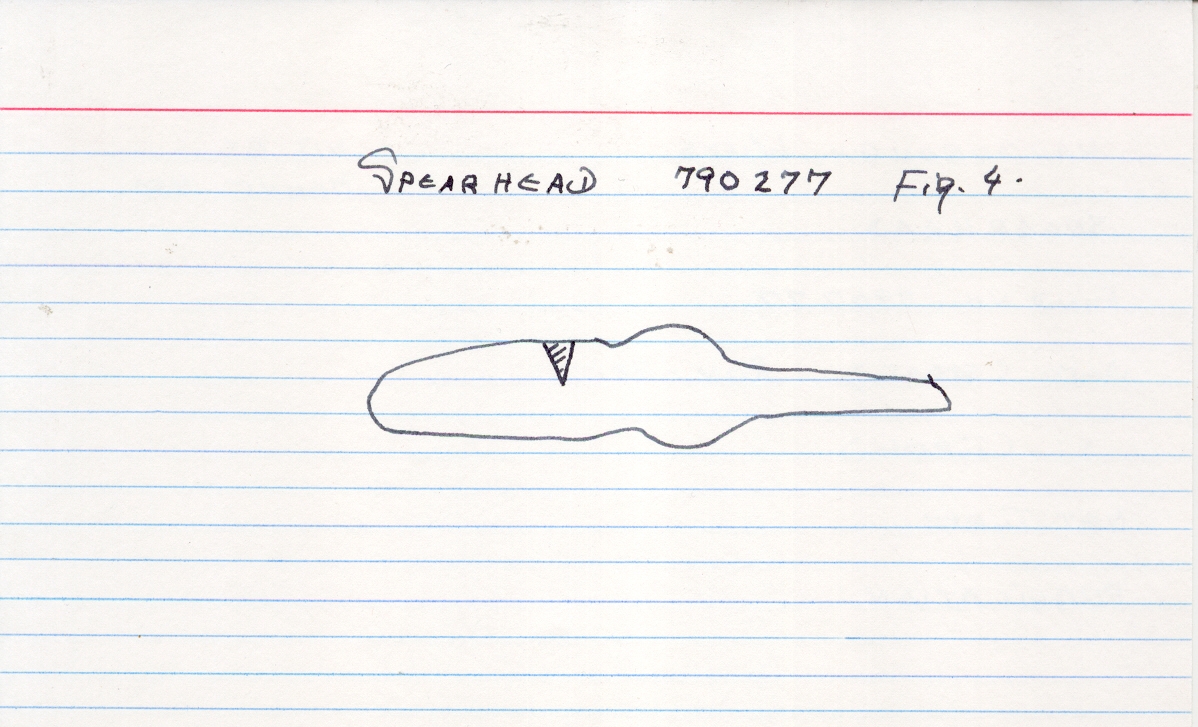 SPEARHEAD 790277 Fig. 4.